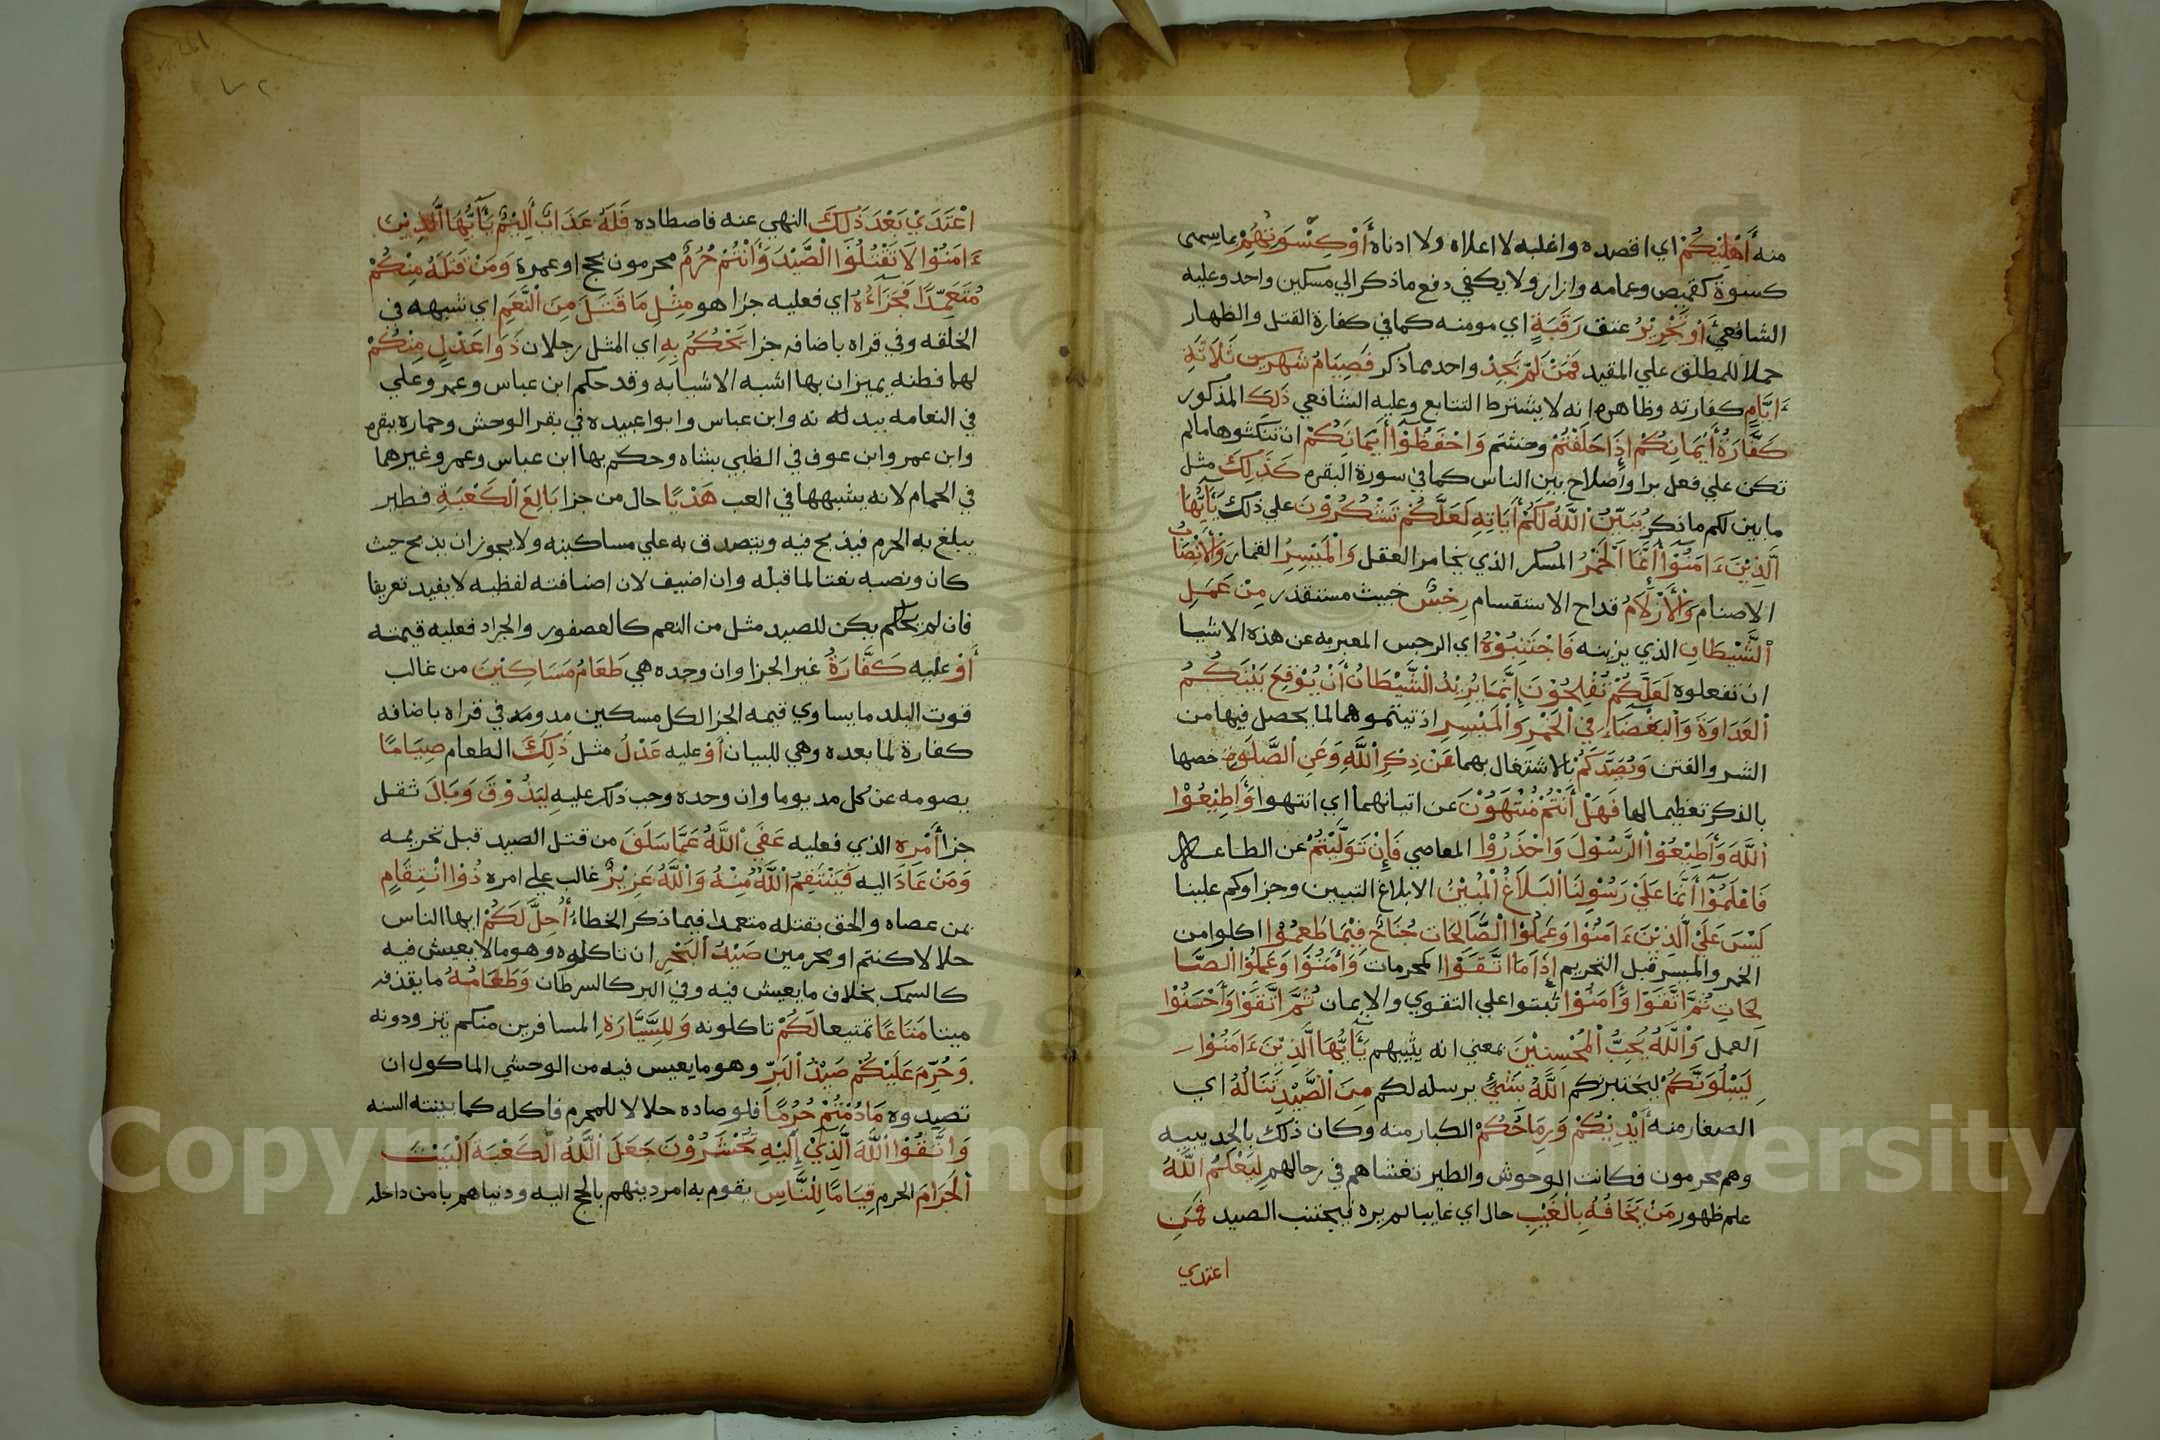 منه أَهْلِيْكُمْ اي اقصده واغلبه لا اعلاه ولا ادناه أَوْ كِسْوَتُهُمْ بما يسمى
كسوة كقميص وعمامه وازار ولا يكفي دفع ما ذكر الي مسكين واحد وعليه
الشافعي أَوْ تَحْرِيْرُ عتق رَقَبَةٍ اي مومنه كما في كفارة القتل والظهار
حملا للمطلق علي المقيد فَمَنْ لَمْ يَجِدْ واحد مما ذكر فَصِيَامُ شهرين ثَلَاثَةِ
ءَايَّامٍ كفارته وظاهره انه لا يشترط التتابع وعليه الشافعي ذَلِكَ المذكور
كَفَّارَةُ أَيْمَانِكُمْ إِذَا حَلَفْتُمْ وحنثتم وَاحْفَظُوْا أَيْمَانَكُمْ ان تنكثوها مالم
تكن علي فعل برا واصلاح بين الناس كما في سورة البقره كَذَلِكَ مثل
ما بين لكم ما ذكر يُبَيِّنُ اللَّهُ لَكُمْ أَيَاتِهِ لَعَلَّكُمْ تَشْكُرُوْنَ علي ذلك يَأَيُّهَا
الَّذِيْنَ ءَامَنُوْا أِنَّمَا الْخَمْرُ المسكر الذي يخامر العقل وَالْمَيْسِرُ القمار وَالْأَنْصَابُ
الاصنام وَالْأَزْلَامُ قداح الاستقسام رِجْسٌ خبيث مستقذر مِنْ عَمَلِ
الشَّيْطَانِ الذي يزينه فَاجْتَنِبُوْهُ اي الرجس المعبر به عن هذه الاشيا
ان تفعلوه لَعَلَّكُمْ تُفْلِحُوْنَ إِنَّمَا يُرِيْدُ الْشَّيْطَانُ أَنْ يُوْقِعَ بَيْنَكُمُ
الْعَدَاوَةَ وَالْبَغْضَاءَ فِي الْخَمْرِ وَالْمَيْسِرِ اذ تيتموهما لما يحصل فيها من
الشر والفتن وَيَصُدَّكُمْ بالاشتغال بهما عَنْ ذِكْرِ اللَّهِ وَعَنِ الصَّلَوةِ خصها
بالذكر تعظيما لها فَهَلْ أَنْتُمْ مُنْتَهَوْنَ عن اتيانهما اي انتهوا وَأَطِيْعُوْا
اللَّهَ وَأَطِيْعُوْا الرَّسُوْلَ وَاحْذَرُوْا المعاصي فَإِنْ تَوَلَّيْتُمْ عن الطاعه
فَاعْلَمُوْا أَنَّمَا عَلَيْ رَسُوْلِنَا الْبَلَاغُ الْمُبِيْنُ الابلاغ التبيين وجزاوكم علينا
لَيْسَ عَلَيْ الَّذِيْنَ ءَامَنُوْا وَعَمِلُوْا الْصَّالِحَاتِ جُنَاحٌ فِيْمَا طَعِمُوْا اكلوا من
الخمر والميسر قبل التحريم إِذَا مَا اتَّقَوْا المحرمات وَأَمَنُوْا وَعَمِلُوْا الصَّا
لِحَاتِ ثُمَّ اتَّقَوْا وَّأَمَنُوْا ثبتوا علي التقوي والايمان ثُمَّ اتَّقَوْا وَأَحْسَنُوْا
العمل وَاللَّهُ يُحِبُّ الْمُحْسِنِيْنَ بمعني انه يثيبهم يَأَيُّهَا الَّذِيْنَ ءَامَنُوْا
لِيَبْلُوَنَّكُمْ ليختبرنكم اللَّهُ بِشَيْءٍ يرسله لكم مِنَ الْصَّيْدِ تَنَالُهُ اي
الصغار منه أَيْدِيْكُمْ وَرِمَاحُكُمْ الكبار منه وكان ذلك بالحديبيه
وهم محرمون فكانت الوحوش والطير تغشاهم في رحالهم لِيَعْلَمَ اللَّهُ
علم ظهور مَنْ يَخَافُهُ بِالْغَيْبِ حال اي غايبا لم يره فيجتنب الصيد فَمَنِ
اعتدي
اعْتَدَيْ بَعْدَ ذَلِكَ النهي عنه فاصطاده فَلَهُ عَذَابٌ أَلِيْمٌ يَأَيُّهَا الَّذِيْنَ
ءَامَنُوْا لَا تَقْتُلُوْا الْصَّيْدَ وَأَنْتُمْ حُرُمٌ محرمون بحج او عمرة وَمَنْ قَتَلَهُ مِنْكُمْ
مُتَعَمِّدًا فَجَزَاءُهُ اي فعليه جزا هو مِثْلِ مَا قَتَلَ مِنَ النَّعَمِ اي شبهه في
الخلقه وفي قراه باضافه جزا يَحْكُمُ بِهِ اي المثل رجلان ذَوَا عَدْلٍ مِنْكُمْ
لهما فطنه يميزان بها اشبه الاشيا به وقد حكم ابن عباس وعمر وعلي
في النعامه ببدنه وابن عباس وابوا عبيده في بقر الوحش وحماره ببقره
وابن عمر وابن عوف في الظبي بشاه وحكم بها ابن عباس وعمر وغيرهما
في الحمام لانه يشبهها في العب هَدْيًا حال من جزا بَالِغَ الْكَعْبَةِ فطير
يبلغ به الحرم فيذبح فيه ويتصدق به علي مساكينه ولا يجوز ان يذبح حيث
كان ونصبه نعتا لما قبله وان اضيف لان اضافته لفظيه لا يفيد تعريفا
فان لم يكن للصيد مثل من النعم كالعصفور والجراد فعليه قيمته
أَوْ عليه كَفَّارَةُ غير الجزا وان وجده هي طَعَامُ مَسَاكِيْنَ من غالب
قوت البلد ما يساوي قيمه الجزا لكل مسكين مد ومد في قراه باضافه
كفارة لما بعده وهي للبيان أَوْ عليه عَدْلُ مثل ذَلِكَ الطعام صِيَامًا
يصومه عن كل مد يوما وان وحده وجب ذلك عليه لِيَذُوْقَ وَبَالَ ثقل
جزا أَمْرِهِ الذي فعليه عَفَي اللَّهُ عَمَّا سَلَفَ من قتل الصيد قبل تحريمه
وَمَنْ عَادَ اليه فَيَنْتَقِمُ اللَّهُ مِنْهُ وَاللَّهُ عَزِيْزٌ غالب علي امره ذُوْا انْتِقَامٍ
ممن عصاه والحق بقتله متعمدا فيما ذكر الخطاء أُحِلَّ لَكُمْ ايها الناس
حلالا كنتم او محرمين صَيْدُ الْبَحْرِ ان تاكلوه وهو ما لا يعيش فيه
كالسمك بخلاف ما يعيش فيه وفي البر كالسرطان وَطَعَامُهُ ما يقذفه
ميتا مَتَاعًا تمتيعا لَكُمْ تاكلونه وَلِلسَّيَّارَةِ المسافرين منكم يتزودونه
وَحُرِّمَ عَلَيْكُمْ صَيْدُ الْبَرِّ وهو ما يعيش فيه من الوحشي الماكول ان
تصيدوه مَادُمْتُمْ حُرُمًا فلو صاده حلالا للمحرم فاكله كما بينته السنه
وَاتَّقُوْا اللَّهَ الَّذِيْ إِلَيْهِ تُحْشَرُوْنَ جَعَلَ اللَّهُ الْكَعْبَةَ الْبَيْتَ
الْحَرَامَ الحرم قِيَامًا لِلْنَّاسِ يقوم به امر دينهم بالحج اليه ودنياهم بامن داخله
Copyright © King Saud University